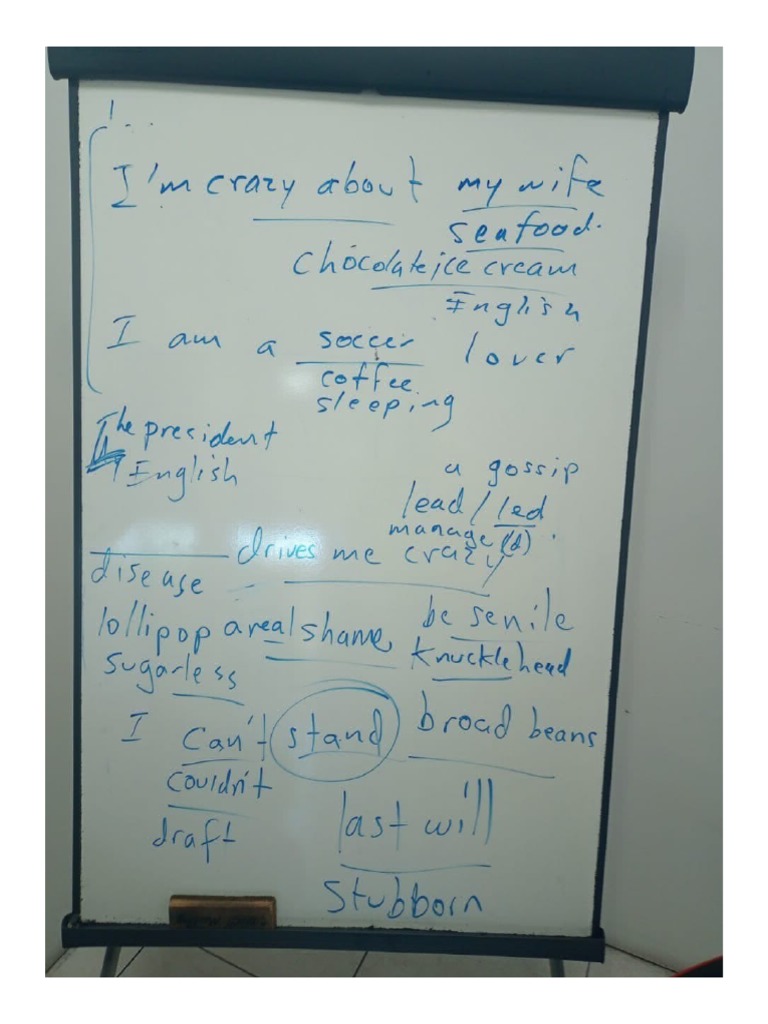 I'm crazy about my wife
seafood.
chocolate ice cream
English
I am a soccer lover
coffee
sleeping
The president
English
a gossip
lead/led
manage(d).
drives me crazy
disease
lollipop a real shame
be senile
sugarless
knucklehead
I can't stand broad beans
couldn't
draft
last will
stubborn